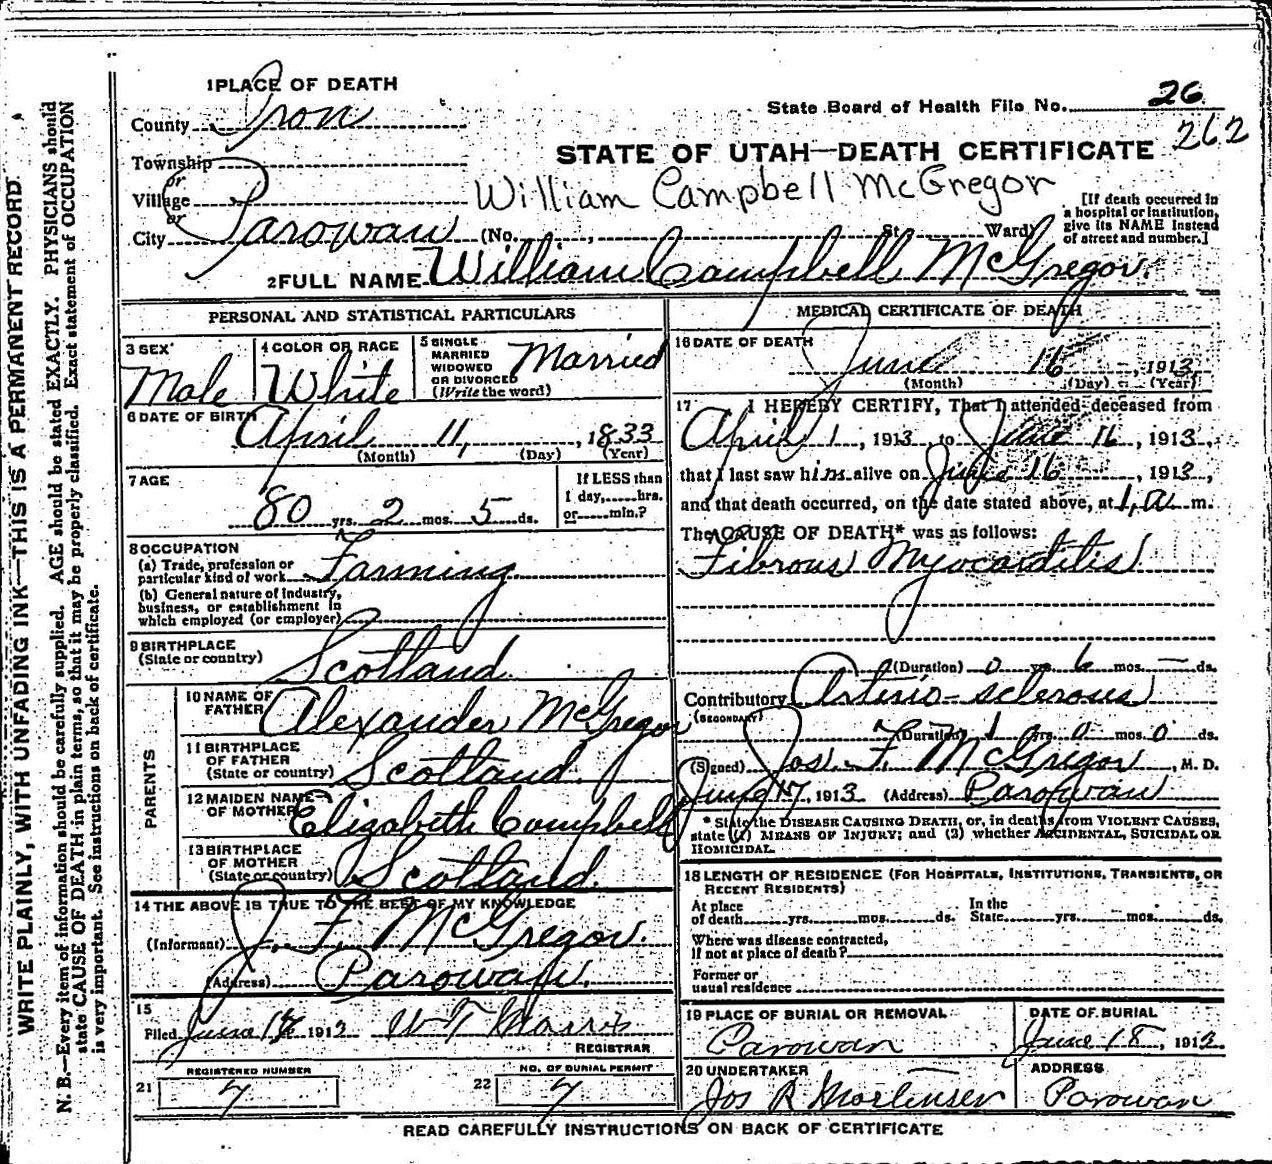 WRITE PLAINLY, WITH UNFADING INK—THIS IS A PERMANENT RECORD.
N. B.—Every item of information should be carefully supplied. AGE should be stated EXACTLY. PHYSICIANS should
state CAUSE OF DEATH in plain terms, so that it may be properly classified. Exact statement of OCCUPATION
is very important. See instructions on back of certificate.
1 PLACE OF DEATH
State Board of Health File No. 26
262
County Iron
STATE OF UTAH—DEATH CERTIFICATE
Township
or
Village
William Campbell McGregor
or
City Parowan (No. , St. Ward)
[If death occurred in
a hospital or institution,
give its NAME instead
of street and number.]
2 FULL NAME William Campbell McGregor.
PERSONAL AND STATISTICAL PARTICULARS
3 SEX Male
4 COLOR OR RACE White
5 SINGLE
MARRIED
WIDOWED
OR DIVORCED
(Write the word)
Married
6 DATE OF BIRTH April 11, , 1833
(Month) (Day) (Year)
7 AGE
80 yrs. 2 mos. 5 ds.
If LESS than
1 day, hrs.
or min.?
8 OCCUPATION
(a) Trade, profession or
particular kind of work Farming
(b) General nature of industry,
business, or establishment in
which employed (or employer)
9 BIRTHPLACE
(State or country) Scotland
PARENTS
10 NAME OF
FATHER Alexander McGregor
11 BIRTHPLACE
OF FATHER
(State or country) Scotland.
12 MAIDEN NAME
OF MOTHER Elizabeth Campbell
13 BIRTHPLACE
OF MOTHER
(State or country) Scotland.
14 THE ABOVE IS TRUE TO THE BEST OF MY KNOWLEDGE
(Informant) J. F. McGregor.
(Address) Parowan.
15
Filed June 17 1913
REGISTRAR
21 REGISTERED NUMBER
7
22 NO. OF BURIAL PERMIT
7
MEDICAL CERTIFICATE OF DEATH
16 DATE OF DEATH
June 16 , 1913,
(Month) (Day) (Year)
17 I HEREBY CERTIFY, That I attended deceased from
April 1 , 1913 to June 16 , 1913,
that I last saw him alive on June 16 , 1913,
and that death occurred, on the date stated above, at 1, a m.
The CAUSE OF DEATH* was as follows:
Fibrous Myocarditis
(Duration) 0 yrs. 6 mos. — ds.
Contributory Arterio-sclerosis
(SECONDARY)
(Duration) 1 yrs. 0 mos. 0 ds.
(Signed) Jos. F. McGregor , M. D.
June 17, 1913 (Address) Parowan
* State the DISEASE CAUSING DEATH, or, in deaths from VIOLENT CAUSES,
state (1) MEANS OF INJURY; and (2) whether ACCIDENTAL, SUICIDAL OR
HOMICIDAL.
18 LENGTH OF RESIDENCE (FOR HOSPITALS, INSTITUTIONS, TRANSIENTS, OR
RECENT RESIDENTS)
At place
of death yrs. mos. ds.
In the
State yrs. mos. ds.
Where was disease contracted,
if not at place of death?
Former or
usual residence
19 PLACE OF BURIAL OR REMOVAL
Parowan
DATE OF BURIAL
June 18, 1913
20 UNDERTAKER
Jos R Mortensen
ADDRESS
Parowan
READ CAREFULLY INSTRUCTIONS ON BACK OF CERTIFICATE